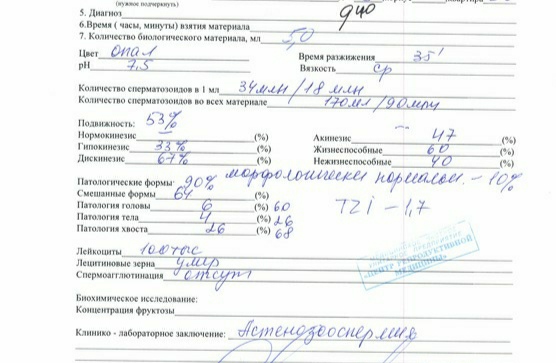 (нужное подчеркнуть)
5. Диагноз
6.Время ( часы, минуты) взятия материала 9 40
7. Количество биологического материала, мл 5,0
Цвет опал Время разжижения 35'
pH 7,5 Вязкость ср
Количество сперматозоидов в 1 мл 34млн/18 млн
Количество сперматозоидов во всех материале 170мл/90млн
Подвижность: 53%
Нормокинезис — (%) Акинезис 47 (%)
Гипокинезис 33% (%) Жизнеспособные 60 (%)
Дискинезис 67% (%) Нежизнеспособные 40 (%)
Патологические формы 90% морфологически нормальн. – 10%
Смешанные формы 64 (%)
Патология головы 6 (%) 60 TZI – 1,7
Патология тела 4 (%) 26
Патология хвоста 26 (%) 68
Лейкоциты 100тыс
Лецитиновые зерна умер
Спермоагглютинация отсут
«ЦЕНТР РЕПРОДУКТИВНОЙ
МЕДИЦИНЫ»
Биохимическое исследование:
Концентрация фруктозы
Клинико - лабораторное заключение: Астенозооспермия